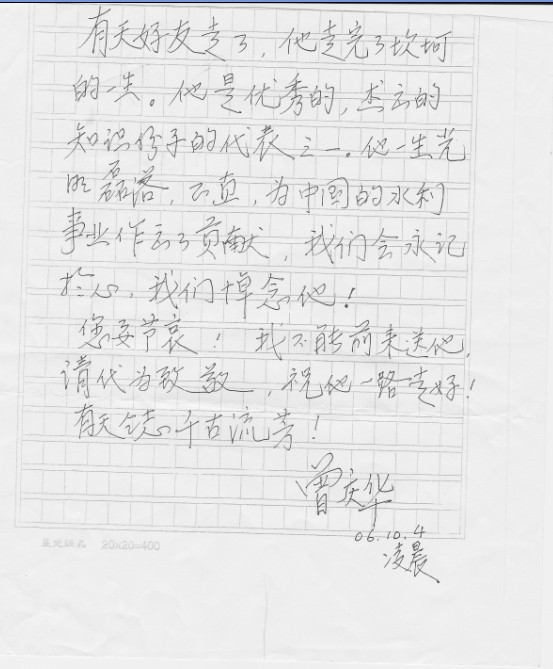 有天好友走了，他走完了坎坷
的一生。他是优秀的，杰出的
知识份子的代表之一。他一生光
明磊落，正直，为中国的水利
事业作出了贡献，我们会永记
於心，我们悼念他！
您要节哀！我不能前来送他，
请代为致敬，祝他一路走好！
有天同志千古流芳！
曾庆华
06.10.4
凌晨
20×20=400